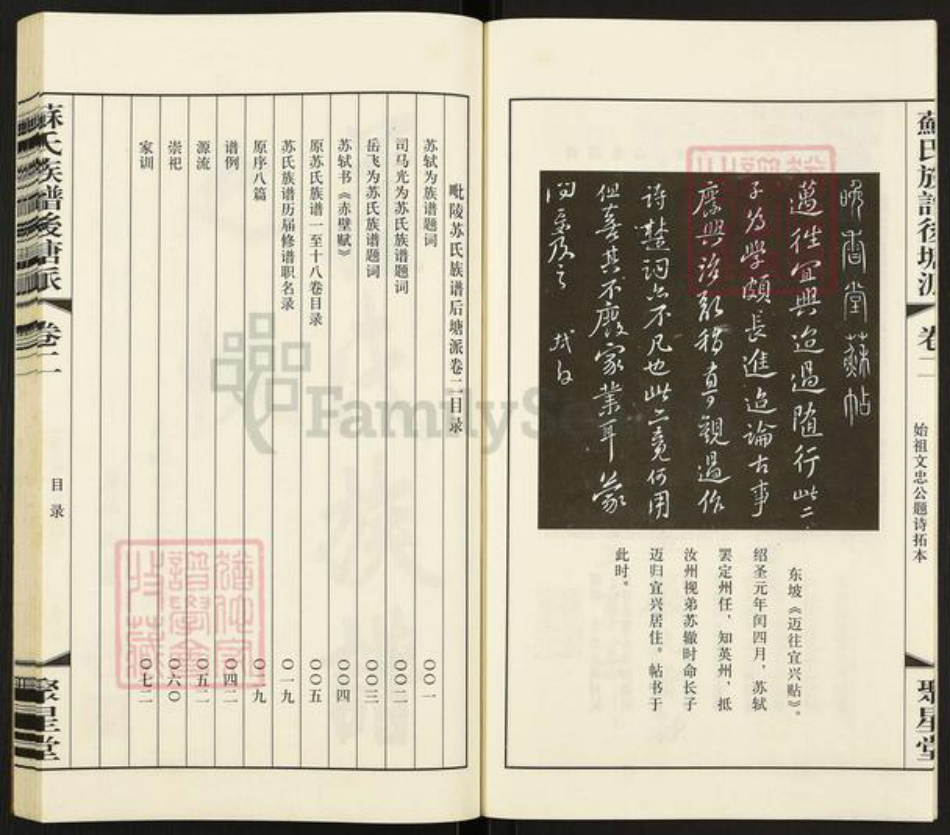 蘇氏族譜後塘派
卷二
始祖文忠公题诗拓本
聚星堂
晚香堂蘇帖
邁往宜興迨過隨行此二
子为學頗長進迨論古事
廢興治亂稍有可觀過作
詩楚詞亦不凡也此二竟何用
但喜其不廢家業耳蒙
问爱及之 轼白
东坡《迈往宜兴贴》。
绍圣元年闰四月，苏轼
罢定州任，知英州，抵
汝州视弟苏辙时命长子
迈归宜兴居住。帖书于
此时。
毗陵苏氏族谱后塘派卷二目录
苏轼为族谱题词 〇〇一
司马光为苏氏族谱题词 〇〇二
岳飞为苏氏族谱题词 〇〇三
苏轼书《赤壁赋》 〇〇四
原苏氏族谱一至十八卷目录 〇〇五
苏氏族谱历届修谱职名录 〇一九
原序八篇 〇二九
谱例 〇四二
源流 〇五二
崇祀 〇六〇
家训 〇七二
蘇氏族譜後塘派
卷二
目录
聚星堂
FamilySe